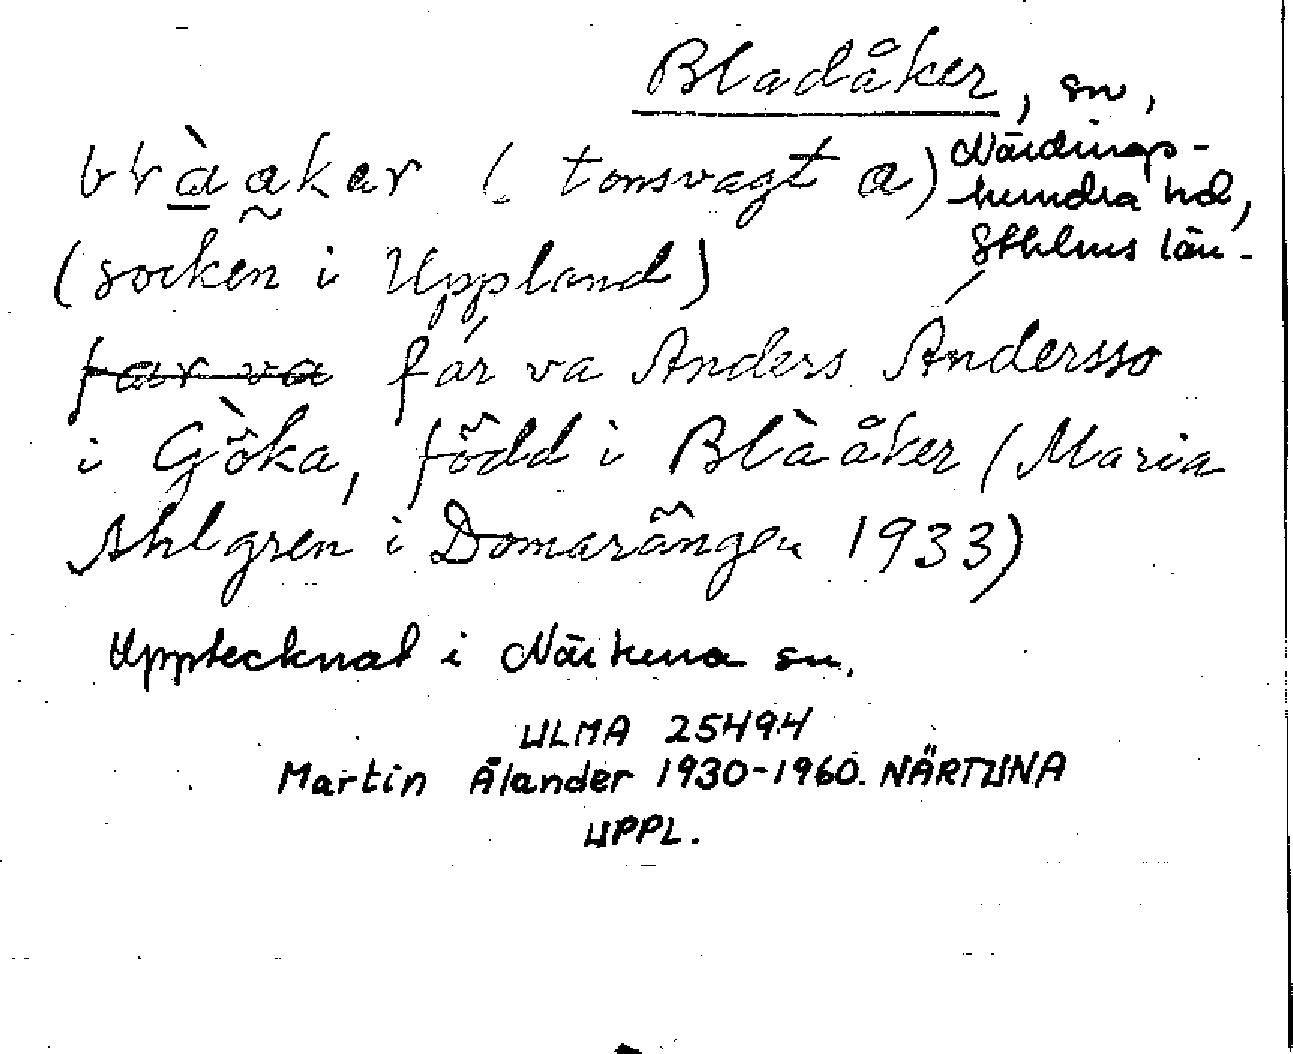 Bladåker, sn,
bràakar (. tonsvagt a) Närdings-
hundra hd,
Sthlms län.
(socken i Uppland)
far va fár va Anders Ándersso
i Gö̀ka, född i Blàåker (Maria
Ahlgren i Domarängen 1933)
Upptecknat i Närtuna sn.
ULMA 25494
Martin Ålander 1930-1960. NÄRTUNA
UPPL.